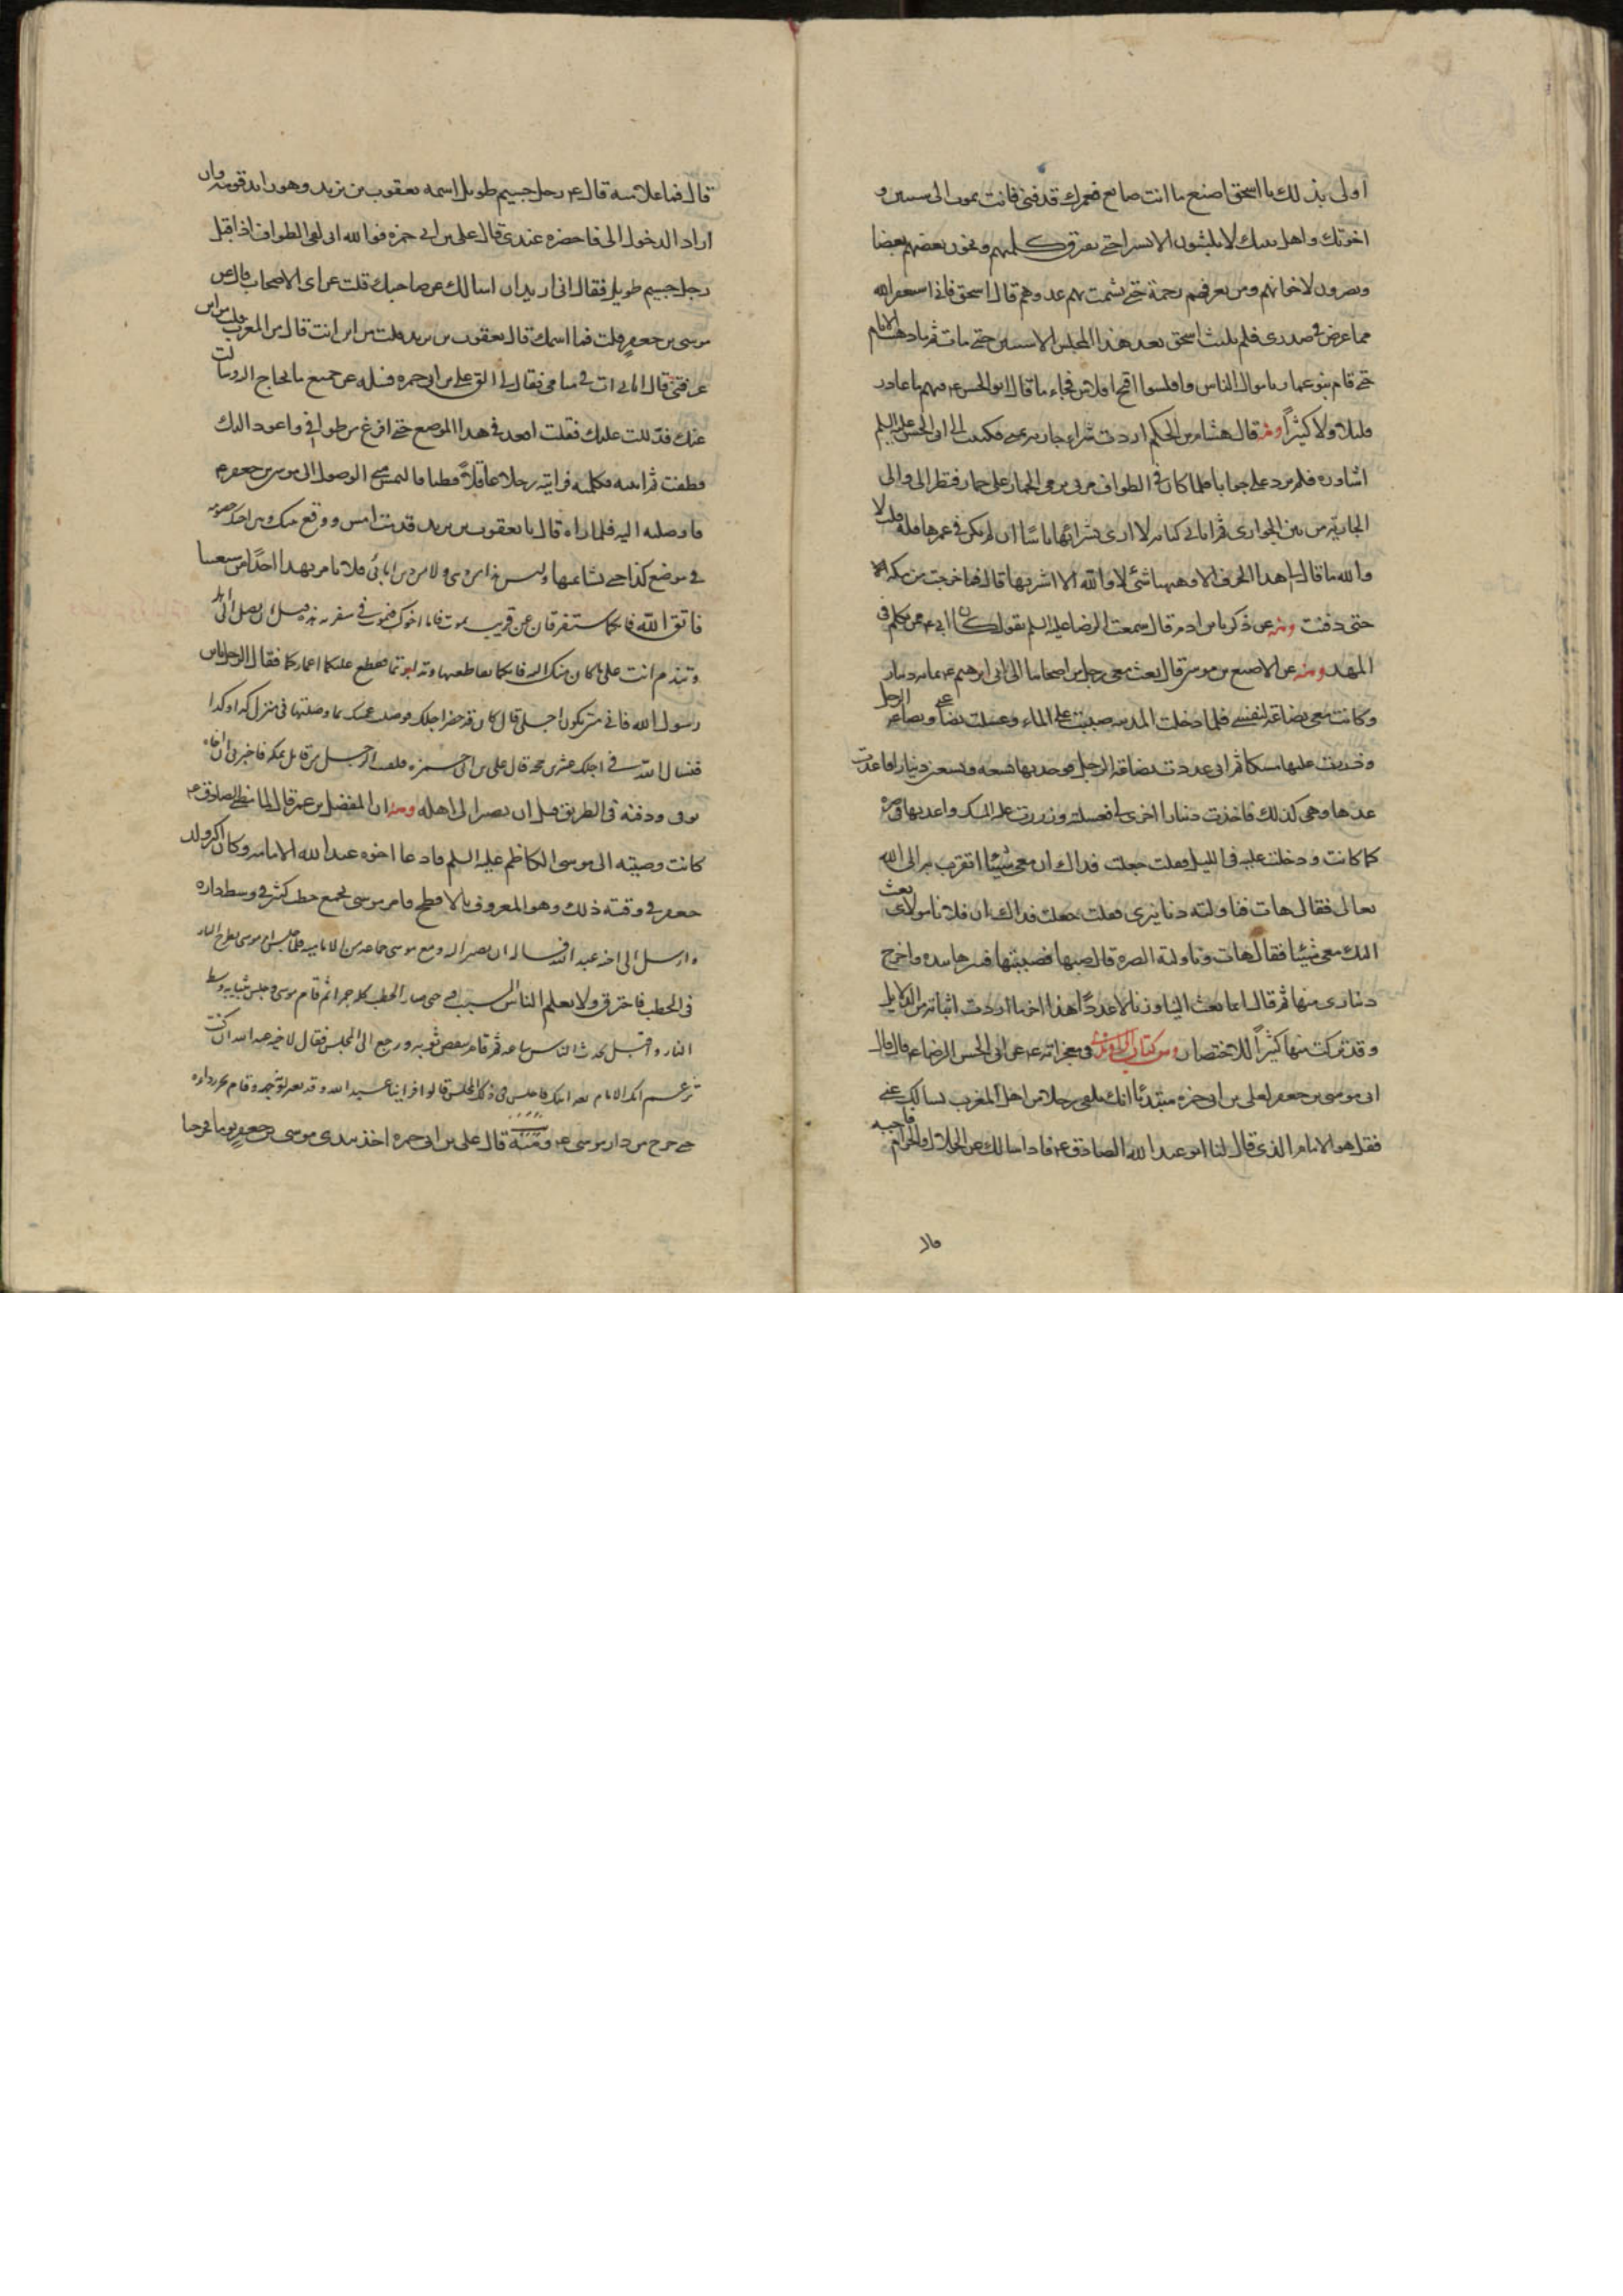 اولى بذلك يا اسحق اصنع ما انت صانع فعمرك قد فنى فانت تموت الى سنتين و
اخوتك واهل بيتك لا يلبثون الا يسيرا حتى يتفرق كلمتهم ويخون بعضهم بعضا
ويصيرون لاخوانهم ومن يعرفهم رحمة حتى يشمت بهم عدوهم قال اسحق فانى استغفر الله
مما عرض فى صدرى فلم يلبث اسحق بعد هذا المجلس الا سنتين حتى مات ثم ما ذهبت الايام
حتى قام بنو عمار باموال الناس وافلسوا اقبح افلاس فجاء ما قال ابو الحسن ع فيهم ما غادر
قليلا ولا كثيراً ومنه قال هشام بن الحكم اردت شراء جارية بمنى فكتبت الى ابى الحسن عليه السلم
اشاوره فلم يرد على جوابا فلما كان فى الطواف مر بى يرمى الجمار على حمار فنظر الى والى
الجارية من بين الجوارى ثم اتانى كتابه لا ارى بشرائها باسا ان لم يكن فى عمرها قلة قلت لا
والله ما قال لى هذا الحرف الا وههنا شئ لا والله لا اشتريها قال فما خرجت من مكة الا
حتى دفنت ومنه عن ذكريا بن ادم قال سمعت الرضا عليه السلم يقول كان ابى ع ممن تكلم فى
المهد ومنه عن الاصبغ بن موسى قال بعث معى رجل من اصحابنا الى ابى ابرهيم ع بمائة دينار
وكانت معى بضاعة لنفسى فلما دخلت المدينة صببت على الماء وغسلت بضاعتى وبضاعة الرجل
وذررت عليها مسكا ثم انى عددت بضاعة الرجل فوجدتها تسعة وتسعين دينارا فاعدت
عدها وهى كذلك فاخذت دينارا اخرى لى فغسلته وذررت عليه المسك واعدتها فى صرة
كما كانت ودخلت عليه فى الليل فقلت جعلت فداك ان معى شيئا اتقرب به الى الله
تعالى فقال هات فناولته دنانيرى فقلت جعلت فداك ان فلانا مولاك بعث
اليك معى شيئا فقال هات فناولته الصرة قال صبها فصببتها فنثرها بيده واخرج
دينارى منها ثم قال انما بعث الينا وزنا لا عدداً هذا اخر ما اوردت اثباته من الدلايل
وقد تركت منها كثيراً للاختصار ومن كتاب الراوندى فى معجزاته ع عن ابى الحسن الرضا ع قال قال
ابى موسى بن جعفر لعلى بن ابى حمزة مبتدئا انك تلقى رجلا من اهل المغرب يسالك عنى
فقل هو الامام الذى قال لنا ابو عبد الله الصادق ع فاذا سالك عن الحلال والحرام فاجبه
قال
قال فما علامته قال ع رجل جسيم طويل اسمه يعقوب بن يزيد وهو رايد قومه وان
اراد الدخول الى فاحضره عندى قال على بن ابى حمزه فوالله انى لفى الطواف اذا اقبل
رجل جسيم طويل فقال انى اريد ان اسالك عن صاحبك قلت عن اى الاصحاب قال عن
موسى بن جعفر قلت فما اسمك قال يعقوب بن يزيد قلت من اين انت قال من المغرب قلت من اين
عرفتنى قال اتانى ات فى منامى فقال لى الق على بن ابى حمزه فسله عن جميع ما تحتاج اليه فسالت
عنك فدللت عليك فقلت اقعد فى هذا الموضع حتى افرغ من طوافى واعود اليك
فطفت ثم اتيته فكلمته فرايته رجلا عاقلاً فطنا فالتمس منى الوصول الى موسى بن جعفر ع
فاوصلته اليه فلما راه قال يا يعقوب بن يزيد قدمت امس ووقع بينك وبين اخيك خصومة
فى موضع كذا حتى تشاتمتما وليس هذا من دينى ولا من دين ابائى فلا نامر بهذا احداً من شيعتنا
فاتق الله فانكما ستفترقان عن قريب بموت فاما اخوك فيموت فى سفرته هذه قبل ان يصل الى اهله
وتندم انت على ما كان منك اليه فانكما تقاطعتما وتدابرتما فقطع عليكما اعماركما فقال الرجل يا بن
رسول الله فانى متى يكون اجلى قال كان قد حضر اجلك فوصلت عمتك بما وصلتها فى منزل كذا وكذا
فنسا الله فى اجلك عشرين حجه قال على بن ابى حمزه فلقيت الرجل من قابل بمكه فاخبرنى ان اخاه
توفى ودفنه فى الطريق قبل ان يصير الى اهله ومنه ان المفضل بن عمر قال لما مضى الصادق ع
كانت وصيته الى موسى الكاظم عليه السلم فادعا اخوه عبد الله الامامه وكان اكبر ولد
جعفر فى وقته ذلك وهو المعروف بالافطح فامر موسى بجمع حطب كثير فى وسط داره
وارسل الى اخيه عبد الله فساله ان يصير اليه ومع موسى جماعه من الاماميه فلما جلس امر موسى بطرح النار
فى الحطب فاحترق ولا يعلم الناس السبب فيه حتى صار الحطب كله جمرا ثم قام موسى وجلس بثيابه وسط
النار واقبل يحدث الناس ساعه ثم قام ينفض ثوبه ورجع الى المجلس فقال لاخيه عبد الله ان كنت
تزعم انك الامام بعد ابيك فاجلس فى ذلك المجلس قالوا فراينا عبد الله وقد تغير لونه وقام يجر رداءه
حتى خرج من دار موسى ع ومنه قال على بن ابى حمزه اخذ بيدى موسى بن جعفر يوما فخرجنا